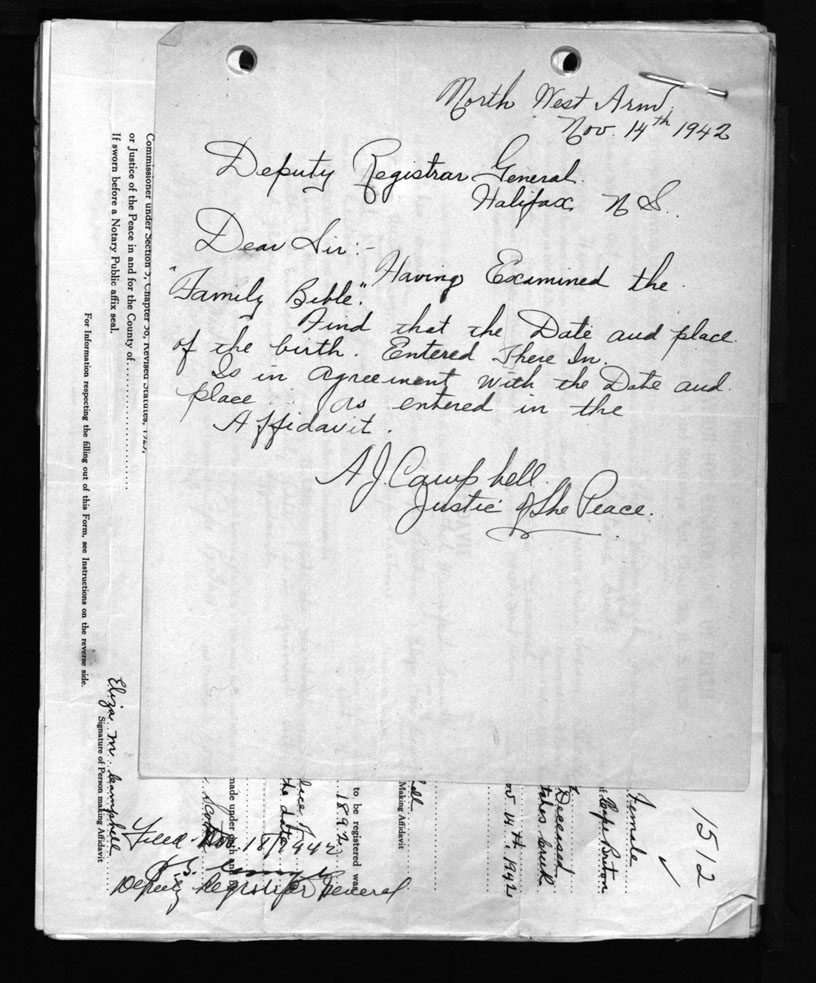 North West Arm
Nov. 14th 1942
Deputy Registrar General.
Halifax, N S.
Dear Sir:-
Having Examined the
"Family Bible".
Find that the Date and place
of the birth. Entered There In.
Is in agreement with the Date and
place as entered in the
Affidavit.
A J Campbell
Justice of The Peace.
Commissioner under Section 5, Chapter 38, Revised Statutes, 1923,
or Justice of the Peace in and for the County of
If sworn before a Notary Public affix seal.
For Information respecting the filling out of this Form, see Instructions on the reverse side.
Eliza M Campbell
Signature of Person making Affidavit
Filed Nov. 18/1942
Deputy Registrar General
made under oath and
the date
to be registered was
1892
Making Affidavit
Nov 14th 1942
Deceased
Cape Breton
Female
1512